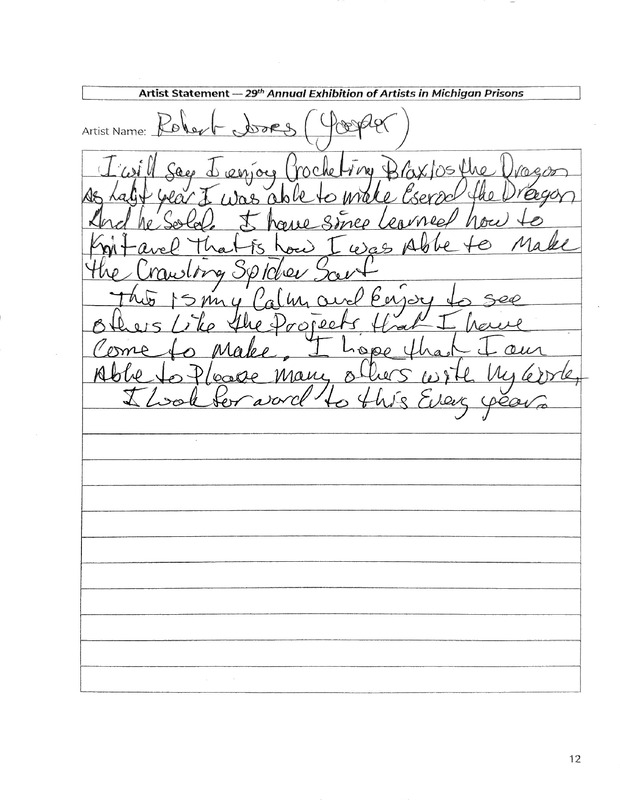 Artist Statement — 29th Annual Exhibition of Artists in Michigan Prisons
Artist Name: Robert Jones (Yooper)
I will say I enjoy Crocheting Blaxios the Dragon
As Last year I was able to make Eserod the Dragon
And he Sold. I have since Learned how to
Knit and That is how I was Able to Make
the Crawling Spider Sarf
This is my Calm and Enjoy to see
others Like the Projects that I have
Come to Make. I hope that I am
Able to Please many others with My Work,
I Look for word to this Every year.
12